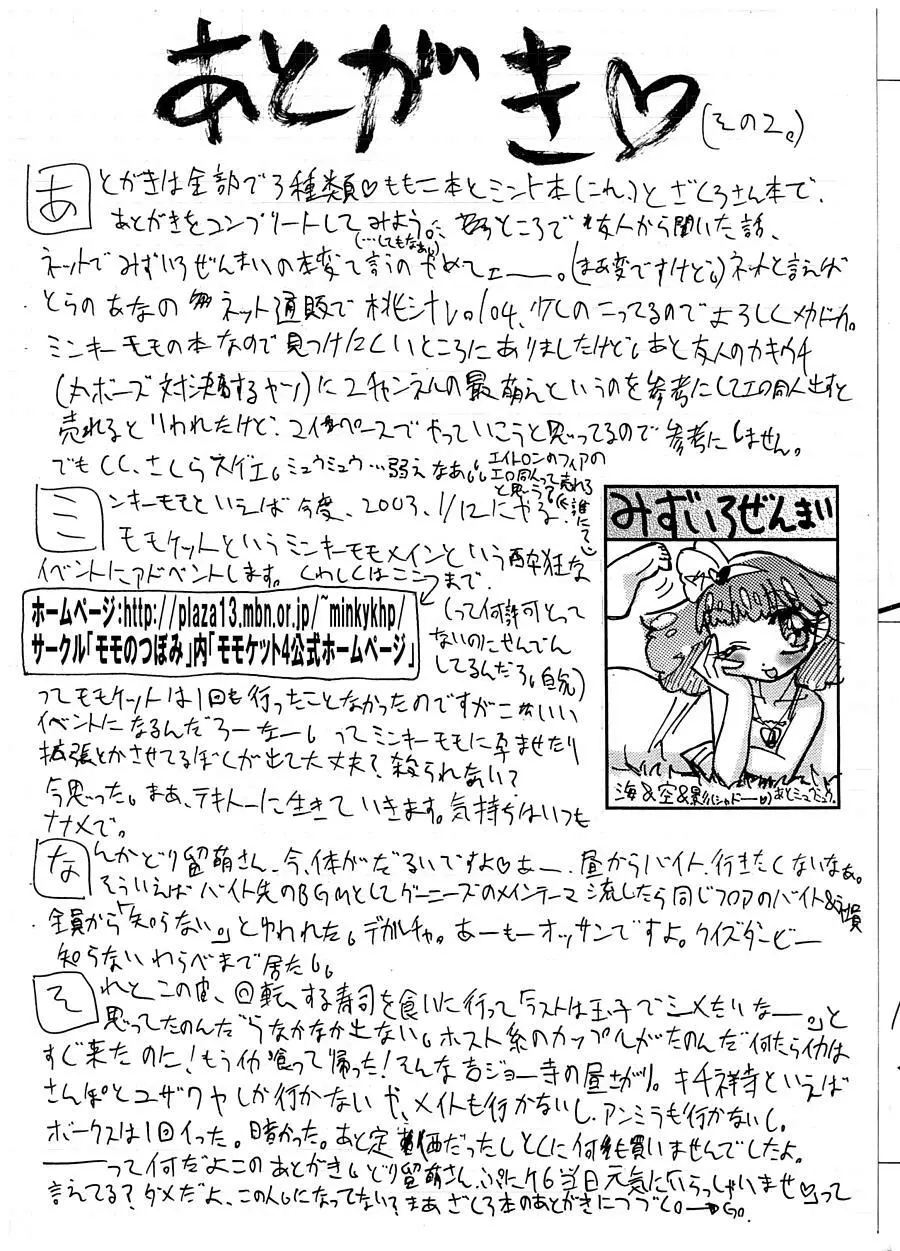 あとがき♡(その2。)
あとがきは全部で3種類♡ももこ本とミント本(これ。)とざくろさん本で、
あとがきをコンプリートしてみよう。ところで友人から聞いた話、
(…してもなあ)
ネットでみずいろぜんまいの本変て言うのやめてェ——。(まあ変ですけど。)ネットと言えば
とらのあなのネット通販で桃汁Vol04、少しのこってるのでよろしくメカドック。
ミンキーモモの本なので見つけにくいところにありましたけど。あと友人のカキウチ
に2チャンネルの最萌えというのを参考にしてエロ同人出すと
売れるといわれたけど、マイペースでやっていこうと思ってるので参考にしません。
でもCC.さくらスゲェ。ミュウミュウ…弱えなあ。
エイトロンのフィアの
エロ同人って売れる
と思う?(誰にて)
ミンキーモモといえば今度、2003、1/12にやる
モモケットというミンキーモモメインという酔狂な
イベントにアドベントします。くわしくはここまで。
ホームページ:http://plaza13.mbn.or.jp/~minkykhp/
サークル「モモのつぼみ」内「モモケット4公式ホームページ」
(って何許可とって
ないのにせんでん
してるんだろ。自分)
ってモモケットは1回も行ったことなかったのですがいい
イベントになるんだろーなー。ってミンキーモモに孕ませたり
拡張とかさせてるぼくが出て大丈夫?殺られない?
今思った。まあ、テキトーに生きていきます。気持ちはいつも
ナナメで。
みずいろぜんまい
海&空&影(シャドー)あとミュウミュウ。
なんかどり留萌さん、今、体がだるいですよ♡あー、昼からバイト、行きたくないなあ。
そういえばバイト先のBGMとしてグーニーズのメインテーマ流したら同じフロアのバイト&社員
全員から「知らない。」とゆわれた。デカルチャ。あーもーオッサンですよ。クイズダービー
知らないわらべまで居たし。
それとこの前、回転する寿司を食いに行って「ラストは玉子でシメたいなー。」と
思ってたのんだらなかなか出ない。ホスト系のカップルがたのんだ何たらイカは
すぐ来たのに!もうイカ喰って帰った!そんな吉ジョー寺の昼下がり。キチ祥寺といえば
さんぽとユザワヤしか行かないや、メイトも行かないし、アンミラも行かないし。
ボークスは1回イった。暗かった。あと定価だったしとくに何も買いませんでしたよ。
——って何だよこのあとがき。どり留萌さん、ぷにケ6当日元気に「いらっしゃいませ♡」って
言えてる?ダメだよ、この人。になってない?まあざくろ本のあとがきにつづく。→Go.